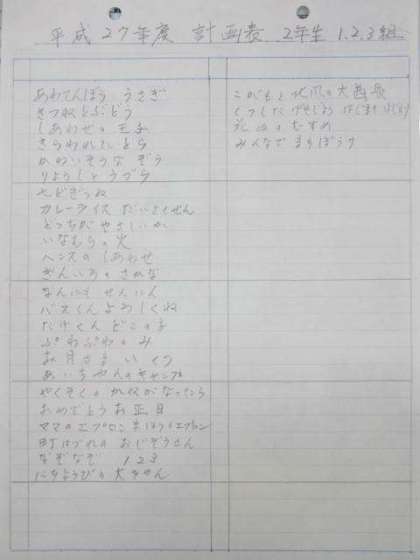 平成27年度 計画表 2年生 1.2.3組
あわてんぼう うさぎ
きつねとぶどう
しあわせの王子
さらわれたとら
かわいそうな ぞう
りょうしとうづら
やどぎつね
カレーライス だいさくせん
どっちが やさしいか
いなむらの火
ヘンスの しあわせ
ぎんいろの さかな
なんにも せんにん
バスくんよろしくね
たけくんどこの子
ぷわぷわのみ
お月さま いくつ
あいちゃんのキャンプ
やくそくの がなったら
おめでとう お正月
ママのエプロン まほうのエプロン
町はづれの おじぞうさん
なぞなぞ 1 2 3
にちようびの 大ずもん
こがもと北風の大
くつした
花 のむすめ
みんなで まめぼうり